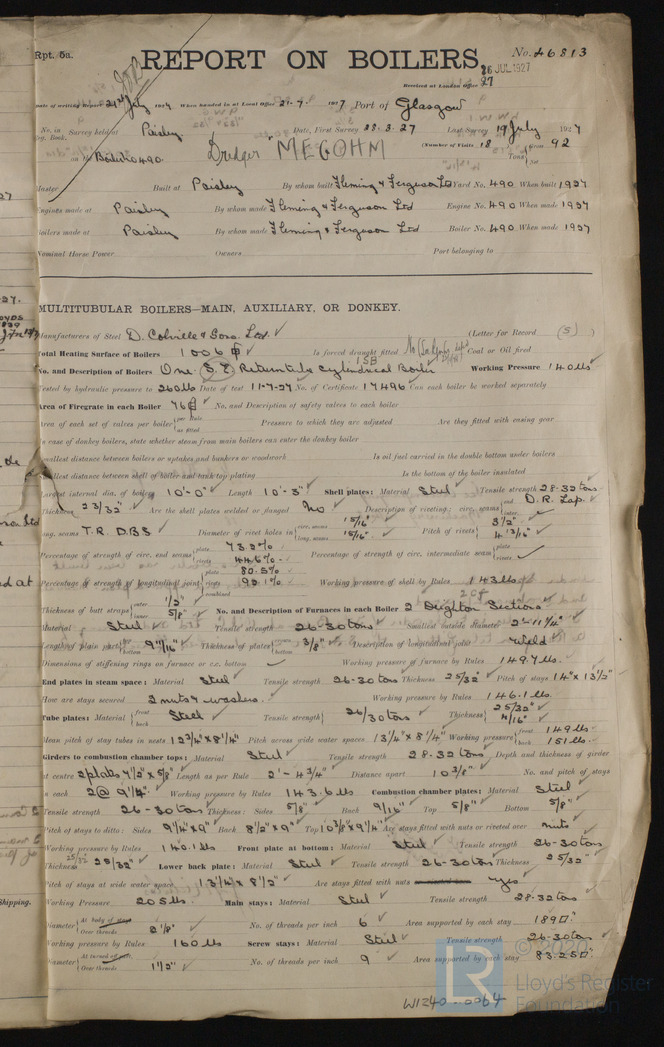 Rpt. 5a.
REPORT ON BOILERS.
No. 46813
26 JUL 1927
Received at London Office
Date of writing Report 21st July 1927 When handed in at Local Office 21.7.1927 Port of Glasgow
No. in Reg. Book. Survey held at Paisley Date, First Survey 28.3.27 Last Survey 19 July 1927
on the Boiler No 490. Dredger MEGOHM (Number of Visits 18 Gross 92
Tons Net
Master Built at Paisley By whom built Fleming & Ferguson Ltd Yard No. 490 When built 1927
Engines made at Paisley By whom made Fleming & Ferguson Ltd Engine No. 490 When made 1927
Boilers made at Paisley By whom made Fleming & Ferguson Ltd Boiler No. 490 When made 1927
Nominal Horse Power Owners Port belonging to
MULTITUBULAR BOILERS—MAIN, AUXILIARY, OR DONKEY.
Manufacturers of Steel D. Colville & Sons. Ltd. (Letter for Record (S) )
Total Heating Surface of Boilers 1006 Is forced draught fitted No Coal or Oil fired
No. and Description of Boilers One S.E. Returntube Cylindrical Boiler 1SB Working Pressure 140 lbs
Tested by hydraulic pressure to 260 lb Date of test 11-7-27 No. of Certificate 17496 Can each boiler be worked separately
Area of Firegrate in each Boiler 76 No. and Description of safety valves to each boiler
Area of each set of valves per boiler per Rule as fitted Pressure to which they are adjusted Are they fitted with easing gear
In case of donkey boilers, state whether steam from main boilers can enter the donkey boiler
Smallest distance between boilers or uptakes and bunkers or woodwork Is oil fuel carried in the double bottom under boilers
Smallest distance between shell of boiler and tank top plating Is the bottom of the boiler insulated
Largest internal dia. of boilers 10'-0" Length 10'-3" Shell plates: Material Steel Tensile strength 28-32 tons
Thickness 23/32" Are the shell plates welded or flanged No Description of riveting: circ. seams end D.R. Lap. inter.
long. seams T.R. D.B.S Diameter of rivet holes in circ. seams 15/16" long. seams 15/16" Pitch of rivets 3 1/2" 4 13/16"
Percentage of strength of circ. end seams plate 73.2% rivets 44.6% Percentage of strength of circ. intermediate seam plate rivets
Percentage of strength of longitudinal joint plate 80.5% rivets 92.1% combined Working pressure of shell by Rules 143 lbs
Thickness of butt straps outer 1/2" inner 5/8" No. and Description of Furnaces in each Boiler 2 Deighton Sections
Material Steel Tensile strength 26-30 tons Smallest outside diameter 2'-11 1/4"
Length of plain part top bottom 9 9/16" Thickness of plates crown bottom 3/8" Description of longitudinal joint Weld
Dimensions of stiffening rings on furnace or c.c. bottom Working pressure of furnace by Rules 149.7 lbs.
End plates in steam space: Material Steel Tensile strength 26-30 tons Thickness 25/32" Pitch of stays 14" x 13 1/2"
How are stays secured 2 nuts & washers. Working pressure by Rules 146.1 lbs.
Tube plates: Material front back Steel Tensile strength 26/30 tons Thickness 25/32" 11/16"
Mean pitch of stay tubes in nests 12 3/4" x 8 1/4" Pitch across wide water spaces 13 1/4" x 8 1/4" Working pressure front 149 lbs. back 151 lbs.
Girders to combustion chamber tops: Material Steel Tensile strength 28.32 tons Depth and thickness of girder
at centre 2 plates 7 1/2" x 5/8" Length as per Rule 2'-4 3/4" Distance apart 10 3/8" No. and pitch of stays
in each 2 @ 9 1/4" Working pressure by Rules 143.6 lbs. Combustion chamber plates: Material Steel
Tensile strength 26-30 tons Thickness: Sides 5/8" Back 9/16" Top 5/8" Bottom 5/8"
Pitch of stays to ditto: Sides 9 1/4" x 9" Back 8 1/2" x 9" Top 10 3/8" x 9 1/4" Are stays fitted with nuts or riveted over nuts
Working pressure by Rules 140.1 lbs Front plate at bottom: Material Steel Tensile strength 26-30 tons
Thickness 25/32" Lower back plate: Material Steel Tensile strength 26-30 tons Thickness 25/32"
Pitch of stays at wide water space 13 1/4" x 8 1/2" Are stays fitted with nuts yes
Working Pressure 205 lbs. Main stays: Material Steel Tensile strength 28-32 tons
Diameter At body of stay Over threads 2 1/8" No. of threads per inch 6 Area supported by each stay 189 □"
Working pressure by Rules 160 lbs Screw stays: Material Steel Tensile strength 26-30 tons
Diameter At turned off part Over threads 1 1/2" No. of threads per inch 9 Area supported by each stay 83.25 □"
© 2020
LR Lloyd's Register Foundation
W1240-0064